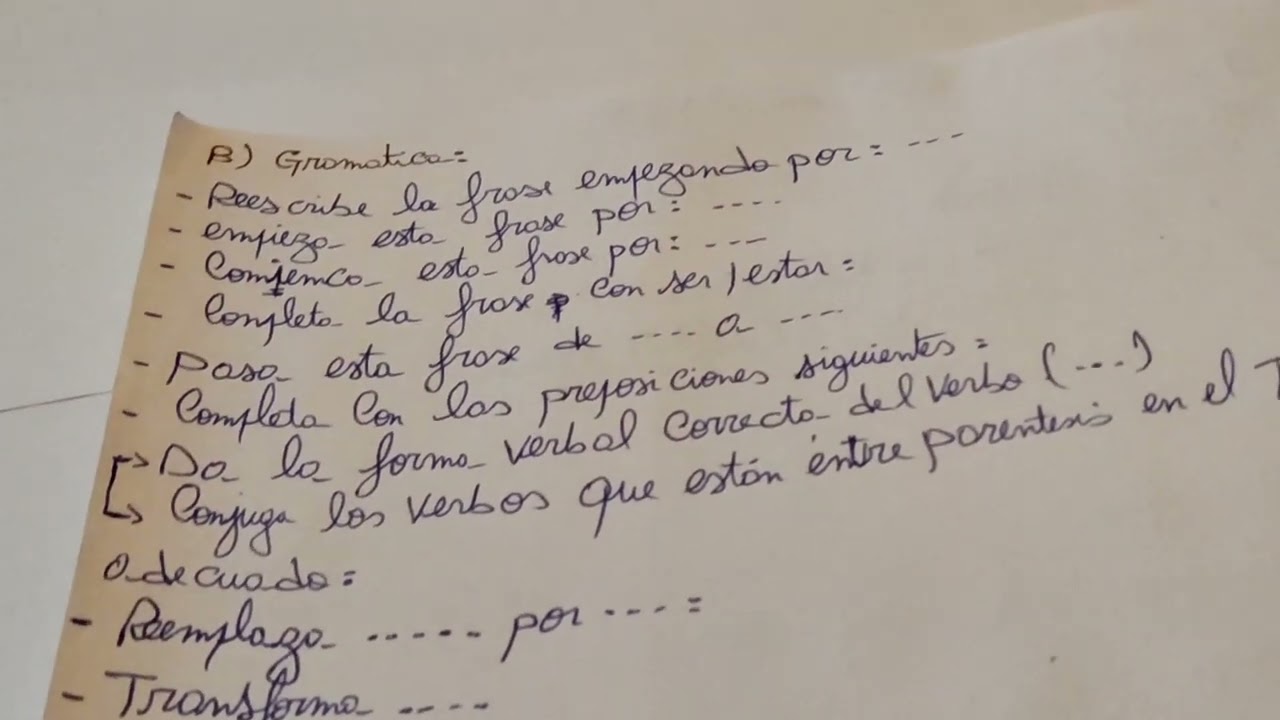 B) Gramatica:
- Reescribe la frase empezando por: ---
- empieza esta frase por: ----
- Comienca esta frase por: ---
- Completa la frase con ser/estar:
- Pasa esta frase de ---- a ----
- Completa con las preposiciones siguientes:
Da la forma verbal correcta del verbo (...)
Conjuga los verbos que están entre parentesis en el T
adecuado:
- Reemplaza ----- por ---- :
- Transforma ----